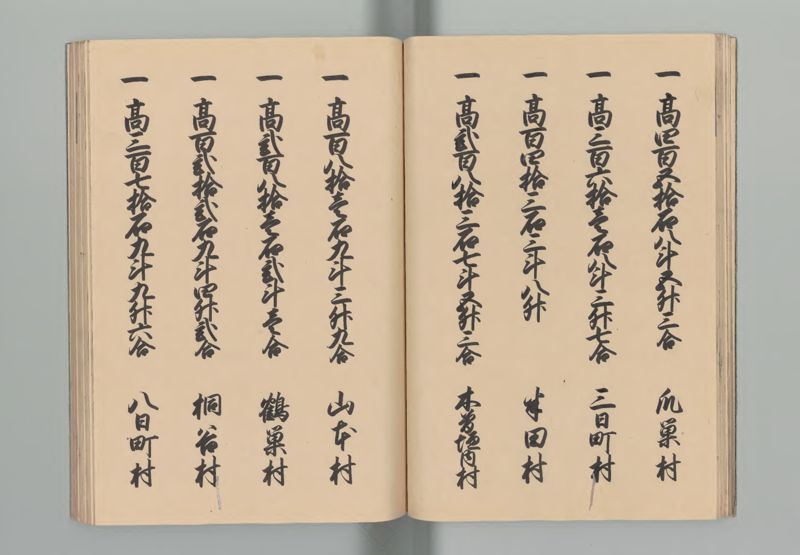 一 高四百五拾石八斗五升三合 爪巣村
一 高三百六拾壱石八斗三升七合 三日町村
一 高百四拾三石三斗八升 半田村
一 高弐百八拾三石七斗五升三合 木曽垣内村
一 高百八拾壱石九斗三升九合 山本村
一 高弐百八拾壱石弐斗壱合 鶴巣村
一 高百弐拾弐石九斗四升弐合 桐谷村
一 高三百七拾石九斗九升六合 八日町村